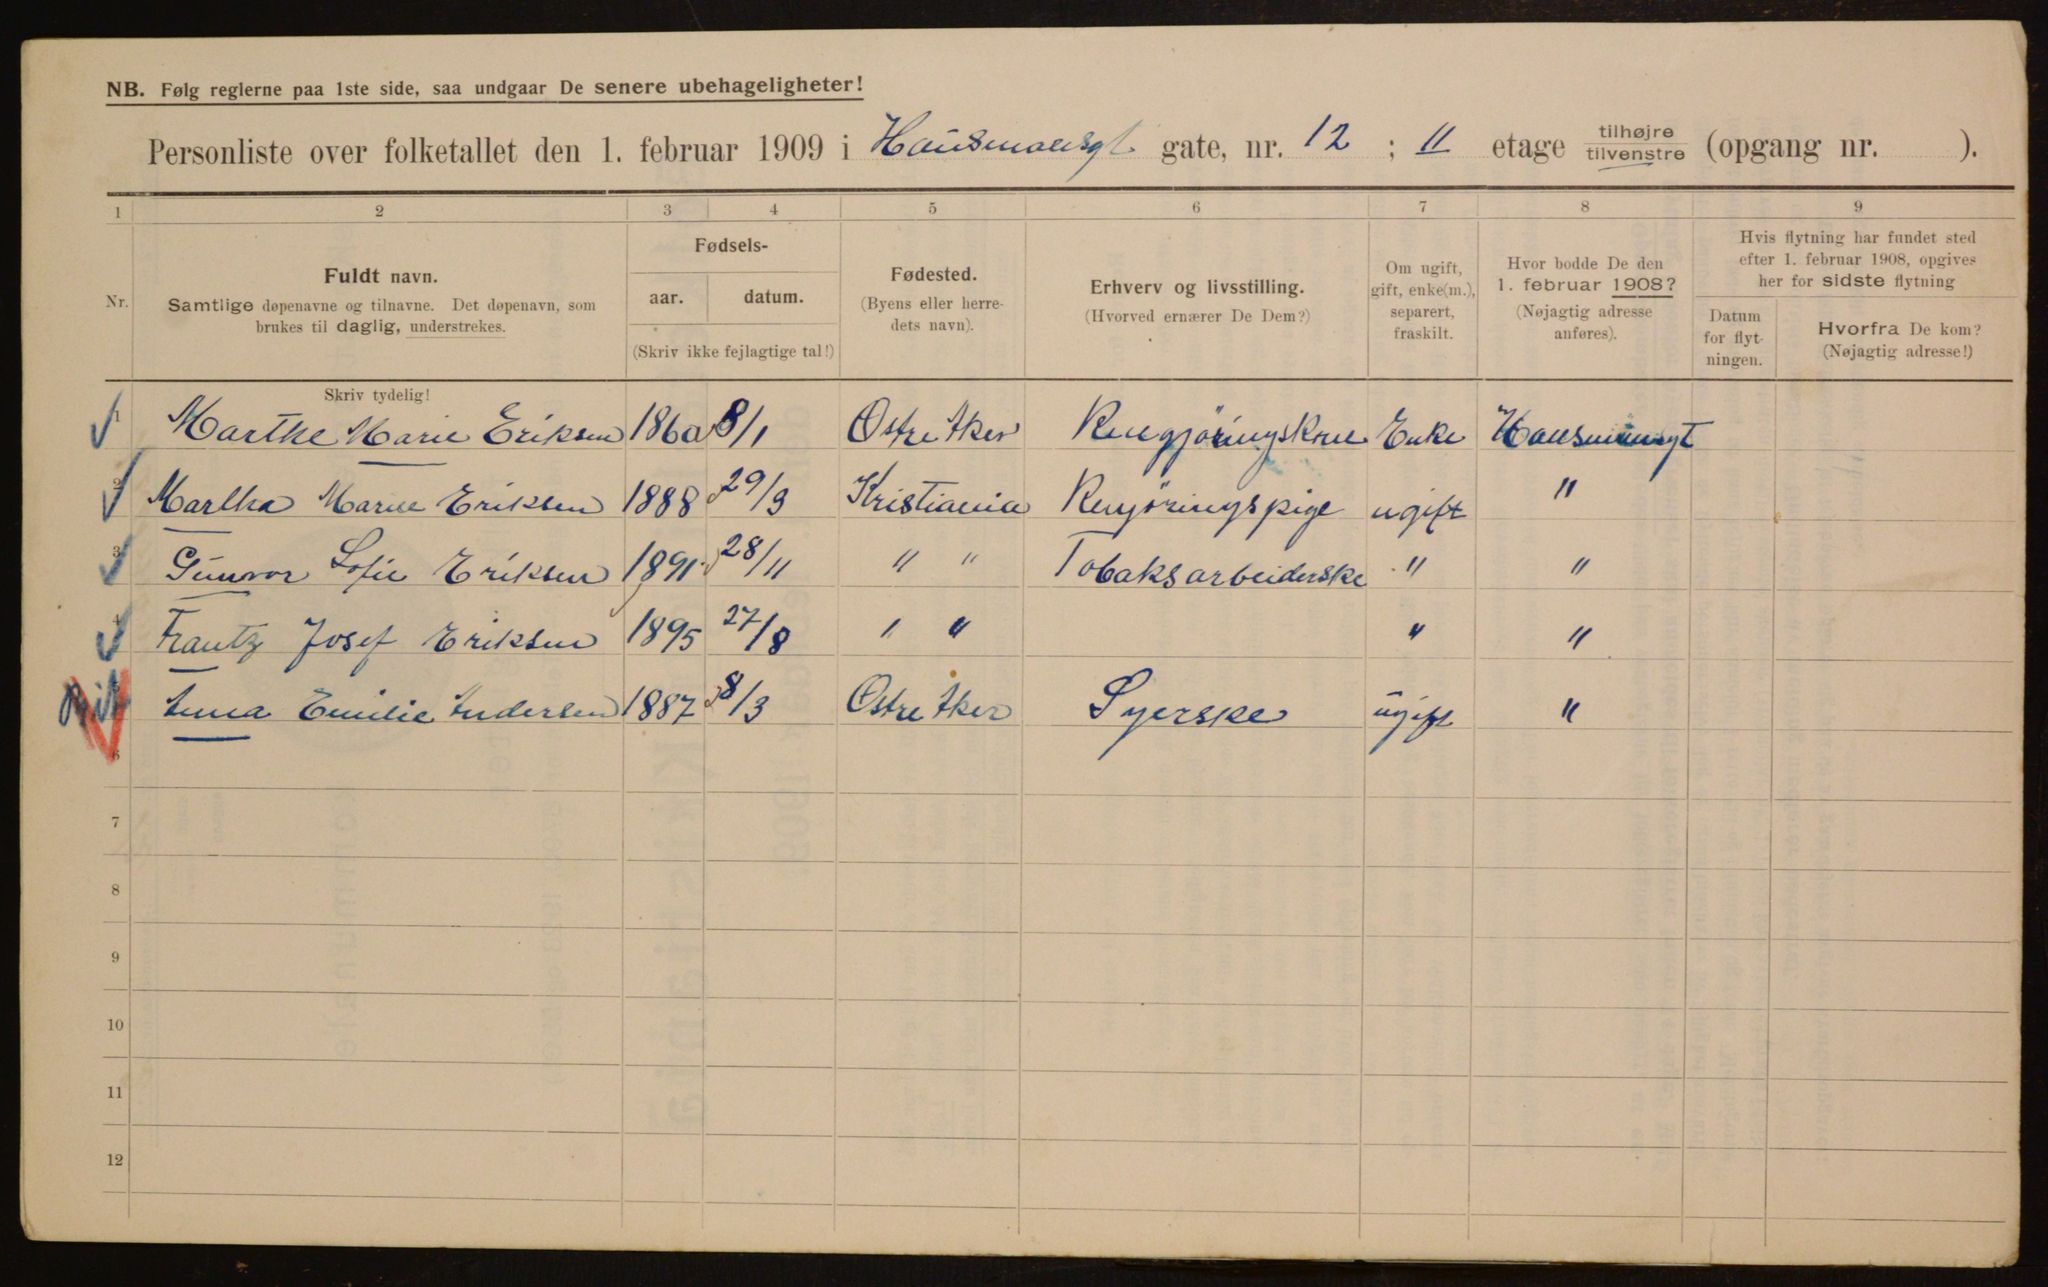 NB. Følg reglerne paa 1ste side, saa undgaar De senere ubehageligheter!
Personliste over folketallet den 1. februar 1909 i Hausmansgt. gate, nr. 12 ; II etage tilhøjre tilvenstre (opgang nr. ).
1 2 3 4 5 6 7 8 9
Nr.
Fuldt navn.
Samtlige døpenavne og tilnavne. Det døpenavn, som
brukes til daglig, understrekes.
Fødsels-
aar. datum.
(Skriv ikke fejlagtige tal!)
Fødested.
(Byens eller herre-
dets navn).
Erhverv og livsstilling.
(Hvorved ernærer De Dem?)
Om ugift,
gift, enke(m.),
separert,
fraskilt.
Hvor bodde De den
1. februar 1908?
(Nøjagtig adresse
anføres).
Hvis flytning har fundet sted
efter 1. februar 1908, opgives
her for sidste flytning
Datum
for flyt-
ningen.
Hvorfra De kom?
(Nøjagtig adresse!)
Skriv tydelig!
1 Marthe Marie Eriksen 1860 8/1 Østre Aker Rengjøringskone Enke Hausmansgt
2 Martha Marie Eriksen 1888 29/9 Kristiania Rengjøringspige ugift "
3 Gunvor Sofie Eriksen 1891 28/11 " " Tobaksarbeiderske " "
4 Frantz Josef Eriksen 1895 27/8 " " " "
Anna Emilie Andersen 1887 8/3 Østre Aker Syerske ugift "
6
7
8
9
10
11
12